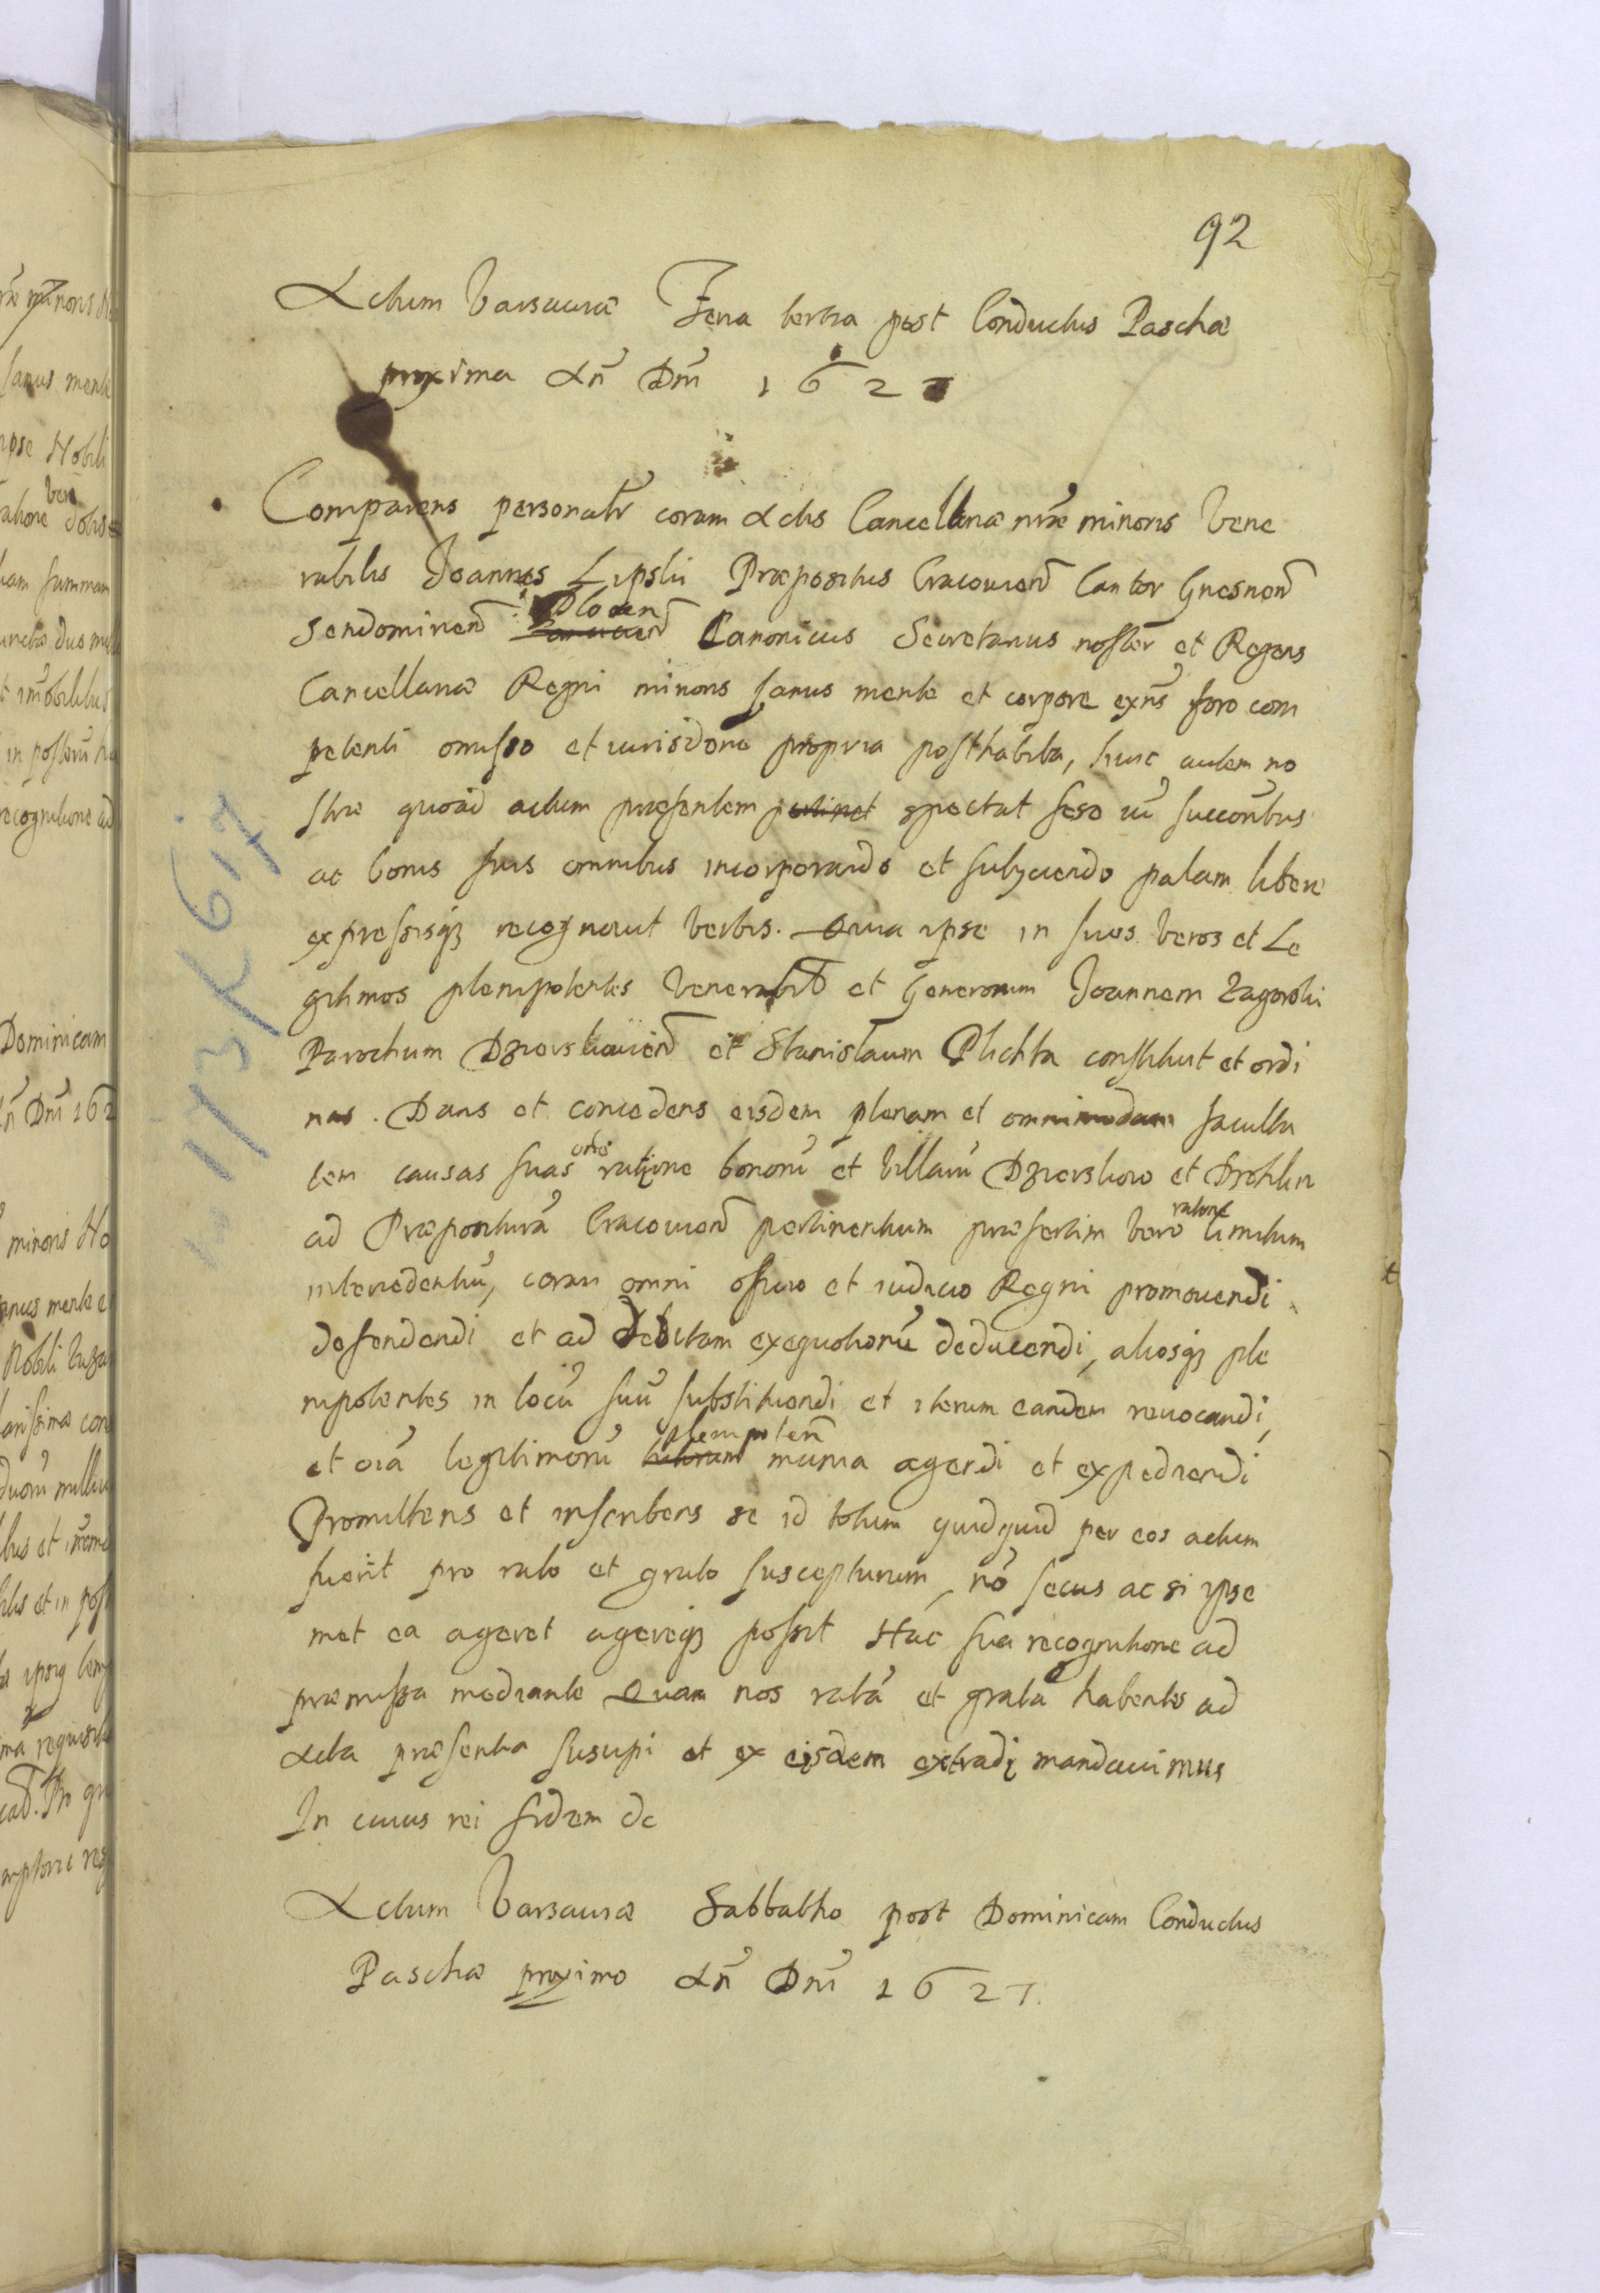 92
Actum Varsaviæ Feria tertia post Conductus Paschæ
proxima An̄ Dn̄i 1627
Comparens personalr̄ coram Actis Cancellariæ nr̄æ minoris Vene
rabilis Joannes Lipski Præpositus Cracouien̄ Cantor Gnesnen̄
Sendomirien̄ Plocen̄ Canonicus Secretarius noster et Regens
Cancellariæ Regni minoris sanus mente et corpore exn̄s foro com
petenti omisso et iurisdōne propria posthabita, huic autem no
stræ quoad actum præsentem pertinet spectat sese cū succorībus
ac bonis suis omnibus incorporando et subyciendo palam libere
expressisq̨ recognouit verbis. Quia ipse in suos veros et Le
gitimos plenipotentes Venerabil̄ et Generosum Joannem Zagorski
Parochum Dzierskouien̄ et Stanislaum Plichta constituit et ordi
nat. Dans et concedens eisdem plenam et omnimodam faculta
tem causas suas oēs ratione bonorū et villarū Dzierskow et Drohlin
ad Præpositurā Cracouien̄ pertinentium præsertim vero ratione limitum
intercedentiū, coram omni officio et iudicio Regni promouendi
defendendi et ad debitam exequutionē deducendi, aliosq̨ ple
nipotentes in locū suū substituendi et iterum eandem reuocandi,
et oīa legitimorū plenipoten̄ tutorum munia agendi et expediendi
Promittens et inscribens se id totum quidquid per eos actum
fuerit pro rato et grato suscepturum, nō secus ac si ipse
met ea ageret agereq̨ possit Hac sua recognitione ad
præmissa mediante Quam nos ratā et gratā habentes ad
Acta præsentia suscipi et ex eisdem extradi mandauimus
In cuius rei fidem &c
Actum Varsauiæ Sabbatho post Dominicam Conductus
Paschæ proximo An̄ Dn̄i 1627.